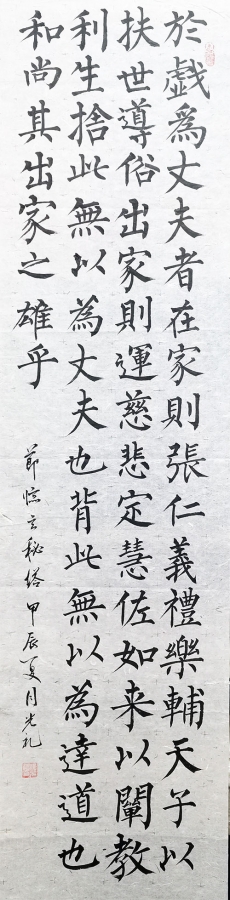 於戯爲丈夫者在家則張仁義禮樂輔天子以
扶世導俗出家則運慈悲定慧佐如来以闡教
利生捨此無以為丈夫也背此無以為達道也
和尚其出家之雄乎
節臨玄秘塔 甲辰夏月光